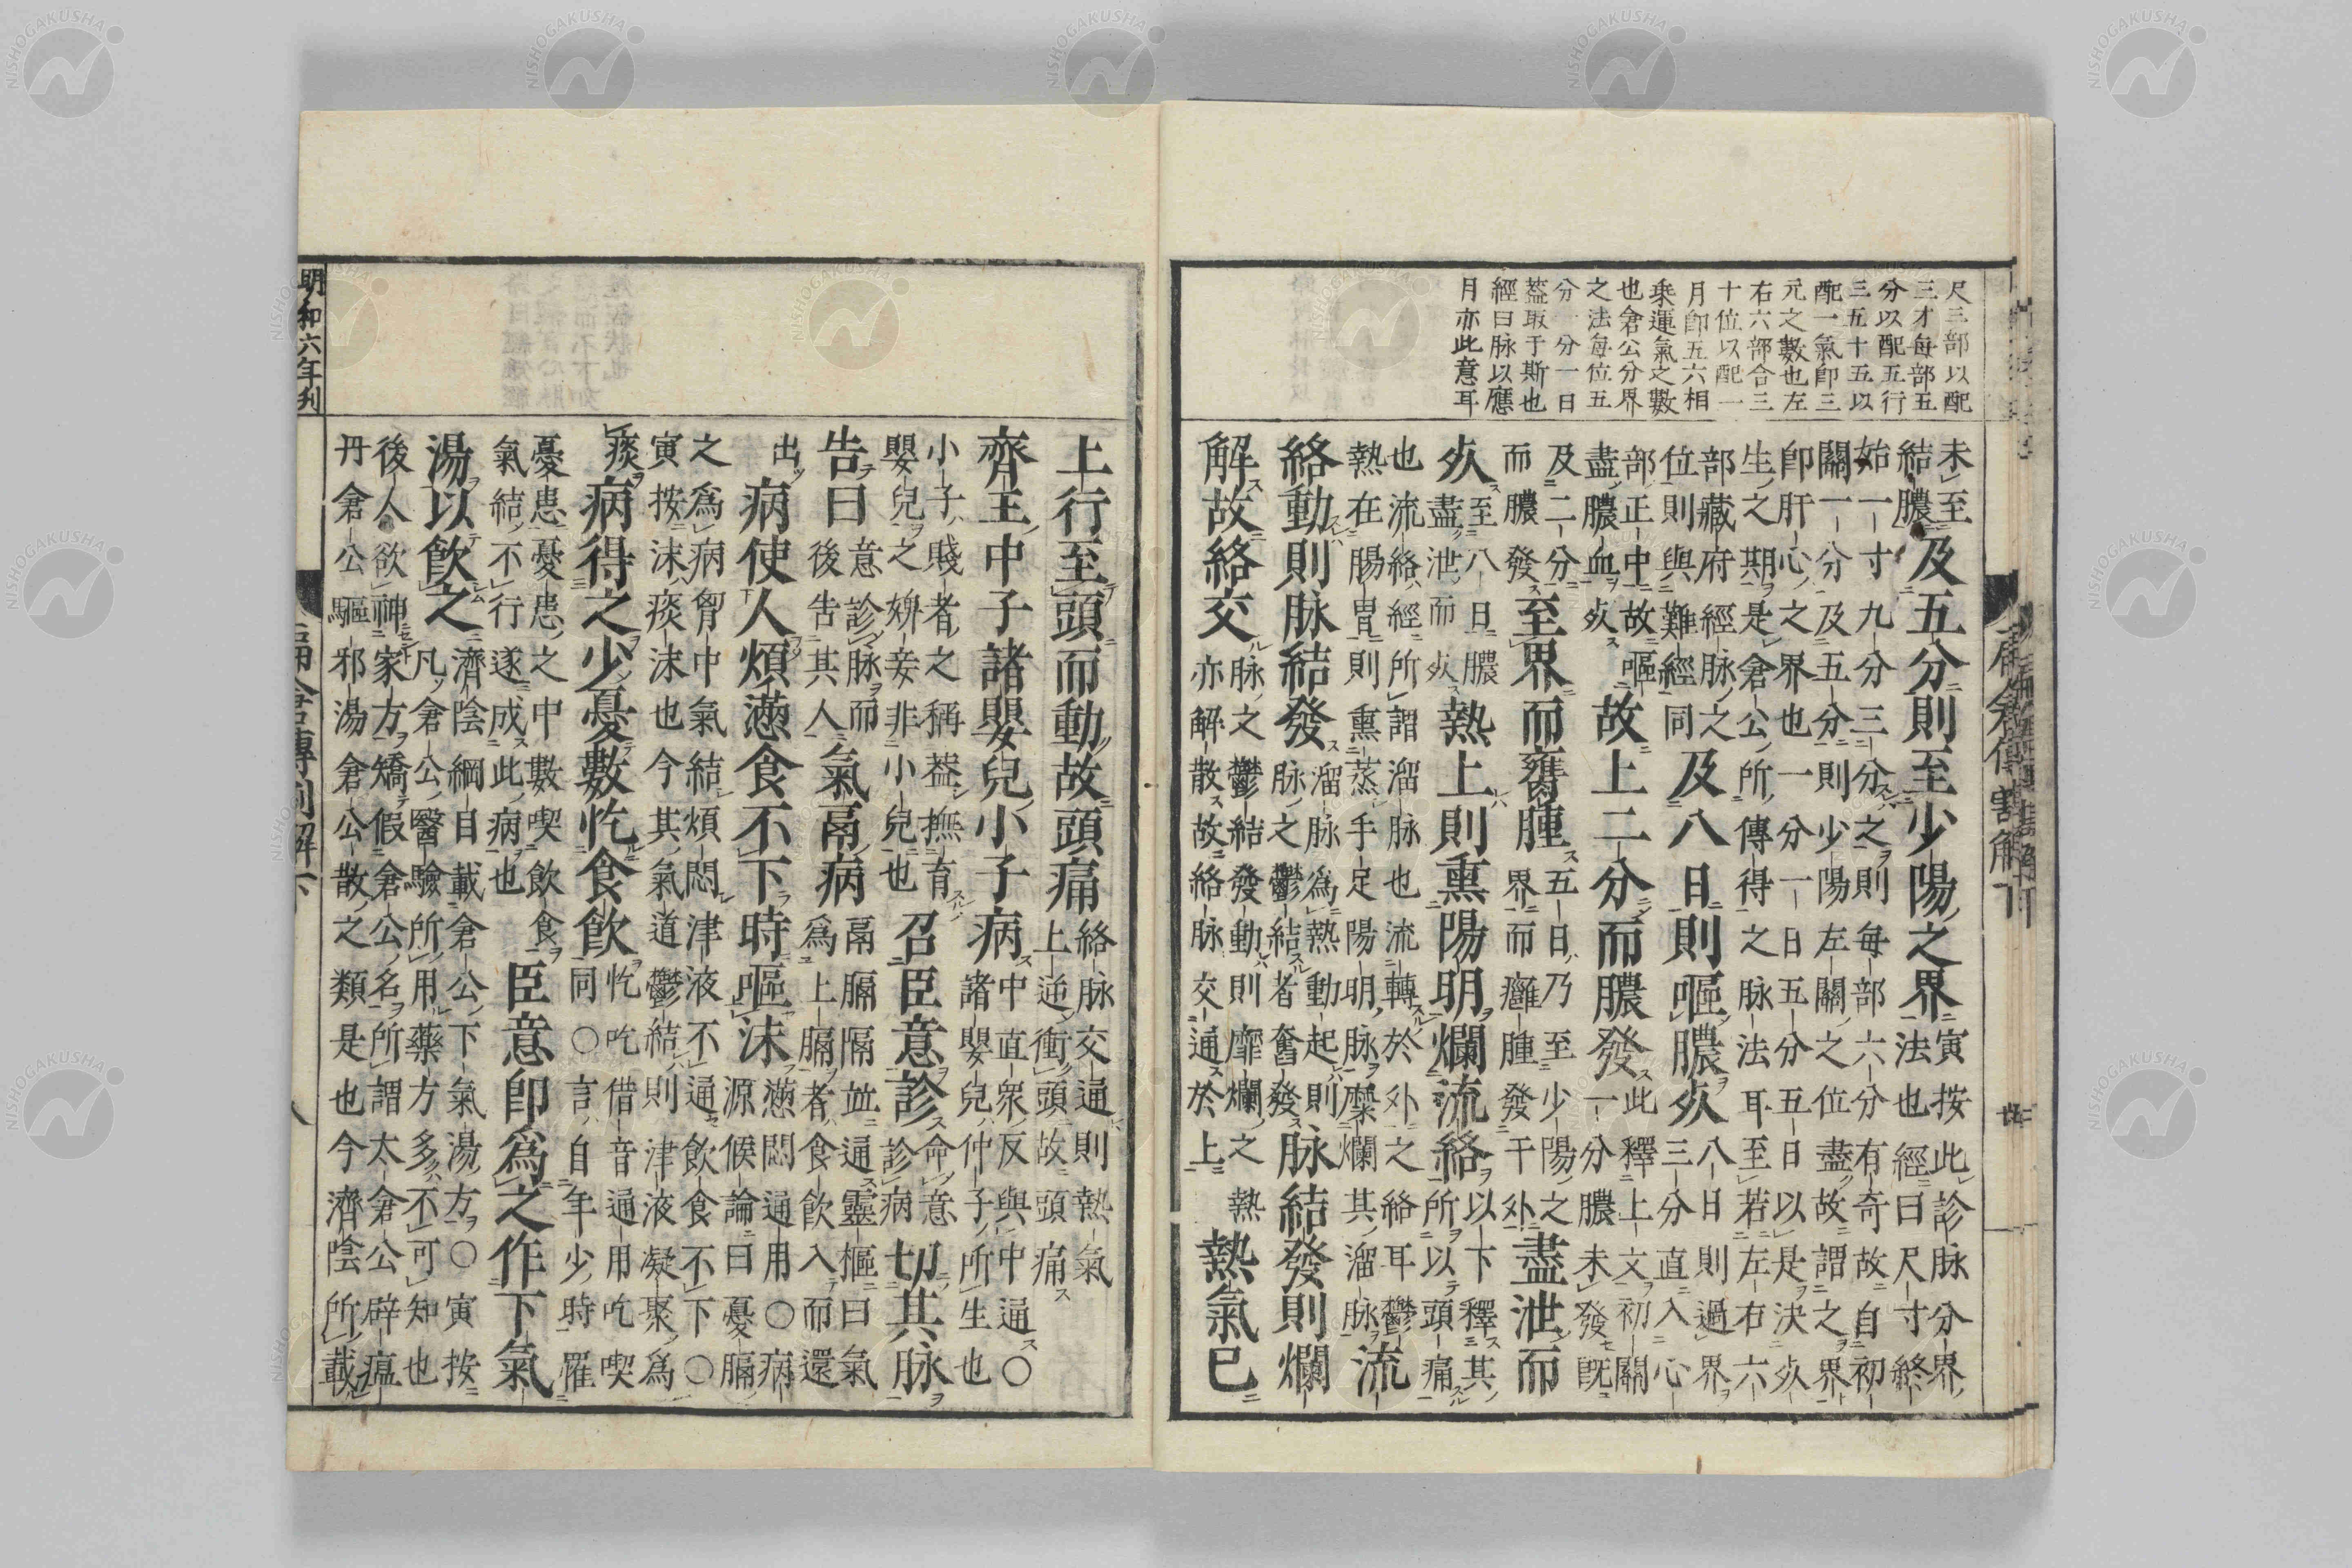 尺三部以配
三才每部五
分以配五行
三五十五以
配一氣卽三
元之數也左
右六部合三
十位以配一
月卽五六相
乘運氣之數
也倉公分界
之法每位五
分一分一日
蓋取于斯也
經曰脉以應
月亦此意耳
未至結膿及五分則至少陽之界寅按此診脉分界法也經曰尺寸終
始一寸九分三分之則每部六分有奇故自初關一分及五分則少陽左關之位盡故謂之界
卽肝心之界也一分一日五分五日以是決死生之期是倉公所傳得之脉法耳至若左右六
部藏府經脉之位則與難經同及八日則嘔膿死八日則過界三分直入心
部正中故嘔盡膿血死故上二分而膿發此釋上文初關一分膿未發旣
及二分而膿發至界而癰腫五日乃至少陽之界而癰腫發干外盡泄而
死至八日膿盡泄而死熱上則熏陽明爛流絡以下釋其所以頭痛
也流絡經所謂溜脉也流轉於外之絡耳鬱熱在腸胃則熏蒸手足陽明脉糜爛其溜脉流
絡動則脉結發溜脉爲熱動起則脉之鬱結者奮發脉結發則爛
解故絡交脉之鬱結發動則靡爛之熱亦解散故絡脉交通於上熱氣已
扁倉傳割解下
上行至頭而動故頭痛絡脉交通則熱氣上逆衝頭故頭痛
齊王中子諸嬰兒小子病中直衆反與中通〇諸嬰兒仲子所生也
小子賤者之稱蓋撫育嬰兒之姘妾非小兒也召臣意診命意診病切其脉
告曰意診脉而後告其人氣鬲病鬲膈隔並通靈樞曰氣爲上膈者食飲入而還
出病使人煩懣食不下時嘔沫懣悶通用〇病源候論曰憂膈
之爲病胷中氣結煩悶津液不通飲食不下〇寅按沫痰沫也今其氣道鬱結則津液凝聚爲
痰病得之少憂數忔食飲忔吃借音通用吃喫同〇言自年少時罹
憂患憂患之中數喫飲食氣結不行遂成此病也臣意卽爲之作下氣
湯以飲之濟陰綱目載倉公下氣湯方〇寅按凡倉公醫驗所用藥方多不可知也
後人欲神家方矯假倉公名所謂太倉公辟瘟丹倉公驅邪湯倉公散之類是也今濟陰所載
明和六年刋
扁倉傳割解下
八